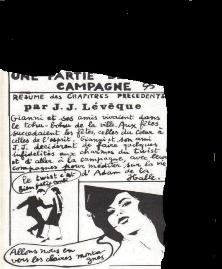 UNE PARTIE DE
CAMPAGNE
RÉSUMÉ des CHAPITRES PRÉCÉDENTS
par J.J. Lévêque
Gianni et ses amis vivaient dans
le tohu-bohu de la ville. Aux fêtes
succédaient les fêtes, celles du cœur à
celles de l'esprit. Gianni et son ami
J.J. décidèrent de faire quelques
infidélités aux charmes du twist
et d'aller à la campagne, avec leurs
compagnes pour méditer sur la vie
d'Adam de la
Halle.
Le twist c'est
bien fatigant
Allons nous en
vers les claires monta-
gnes